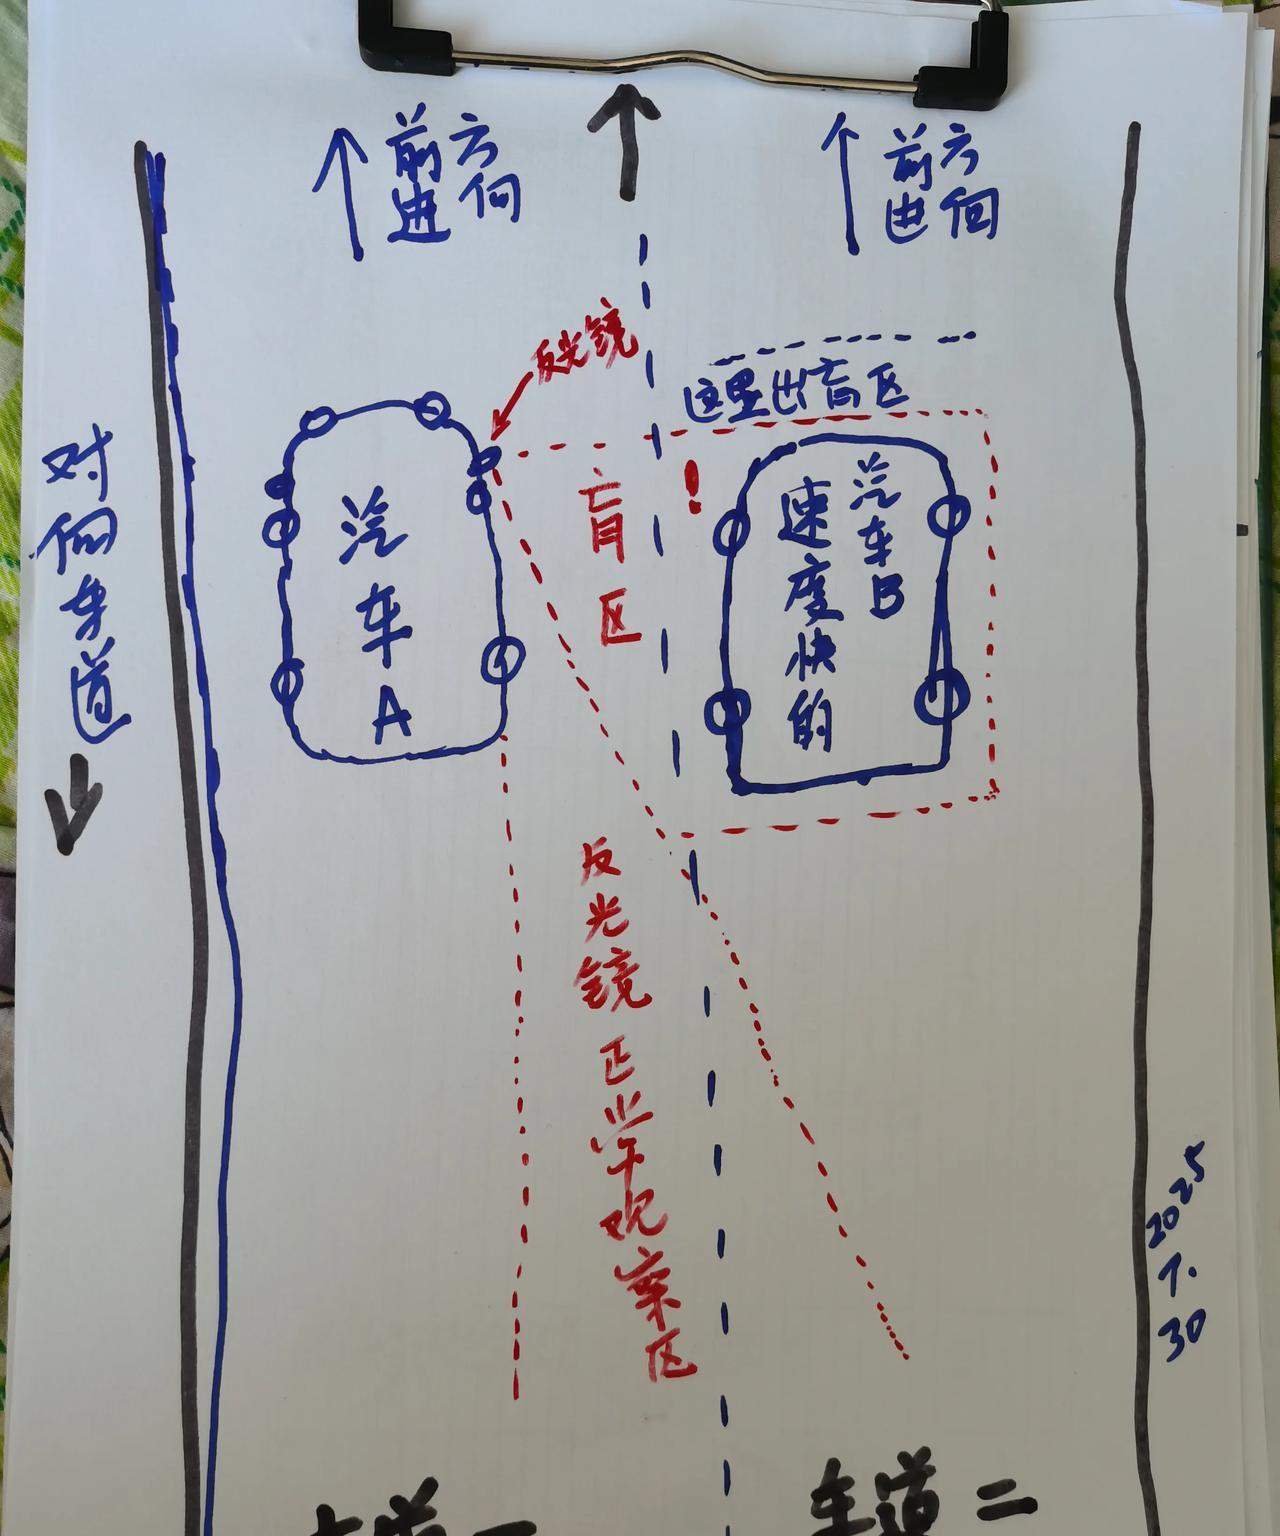 前方
进向
前方
进向
反光镜
这里出盲区
对向车道
盲区
!
汽车A
汽车B
速度快的
反光镜正常观察区
2025
7.
30
车道一
车道二